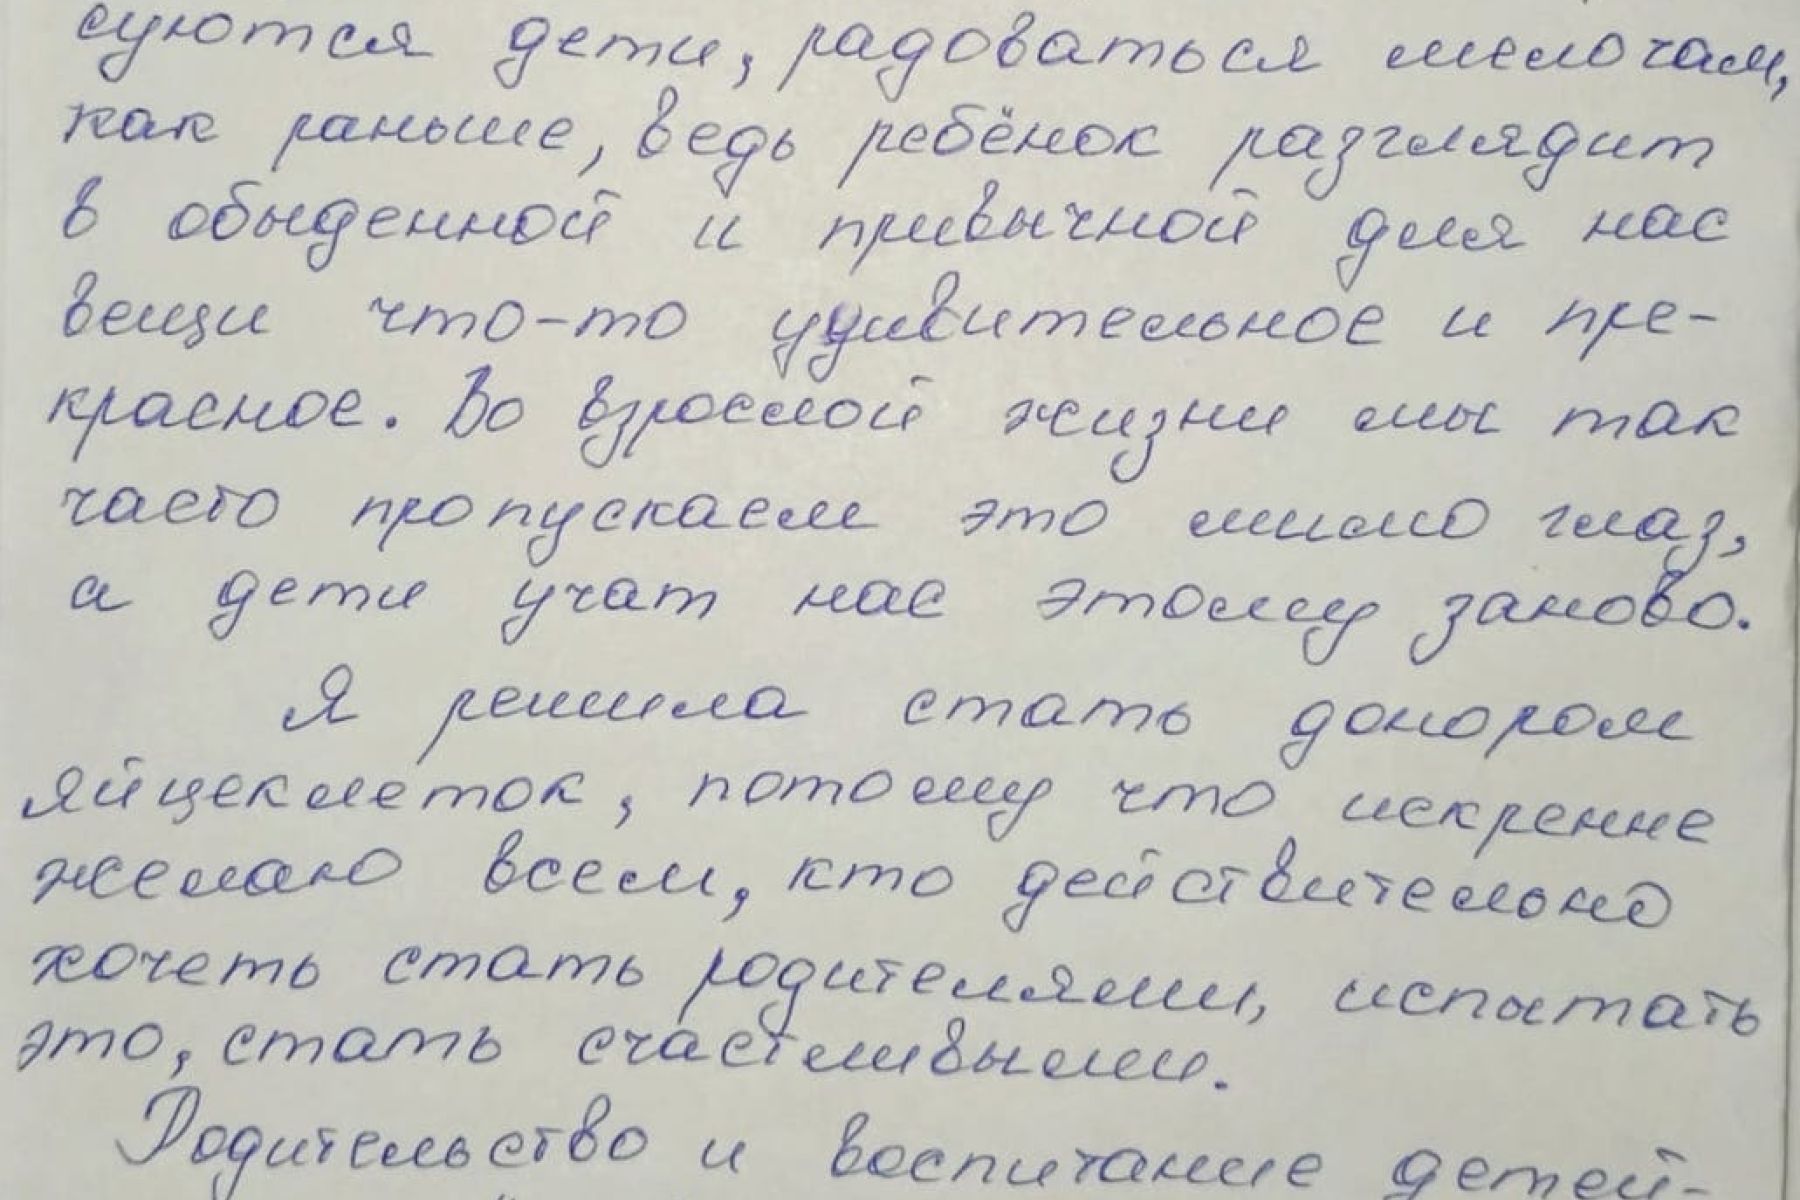 суются дети, радоваться мелочам,
как раньше, ведь ребёнок разглядит
в обыденной и привычной для нас
вещи что-то удивительное и пре-
красное. Во взрослой жизни мы так
часто пропускаем это мимо глаз,
а дети учат нас этому заново.
Я решила стать донором
яйцеклеток, потому что искренне
желаю всем, кто действительно
хочеть стать родителями, испытать
это, стать счастливыми.
Родительство и воспитание детей-